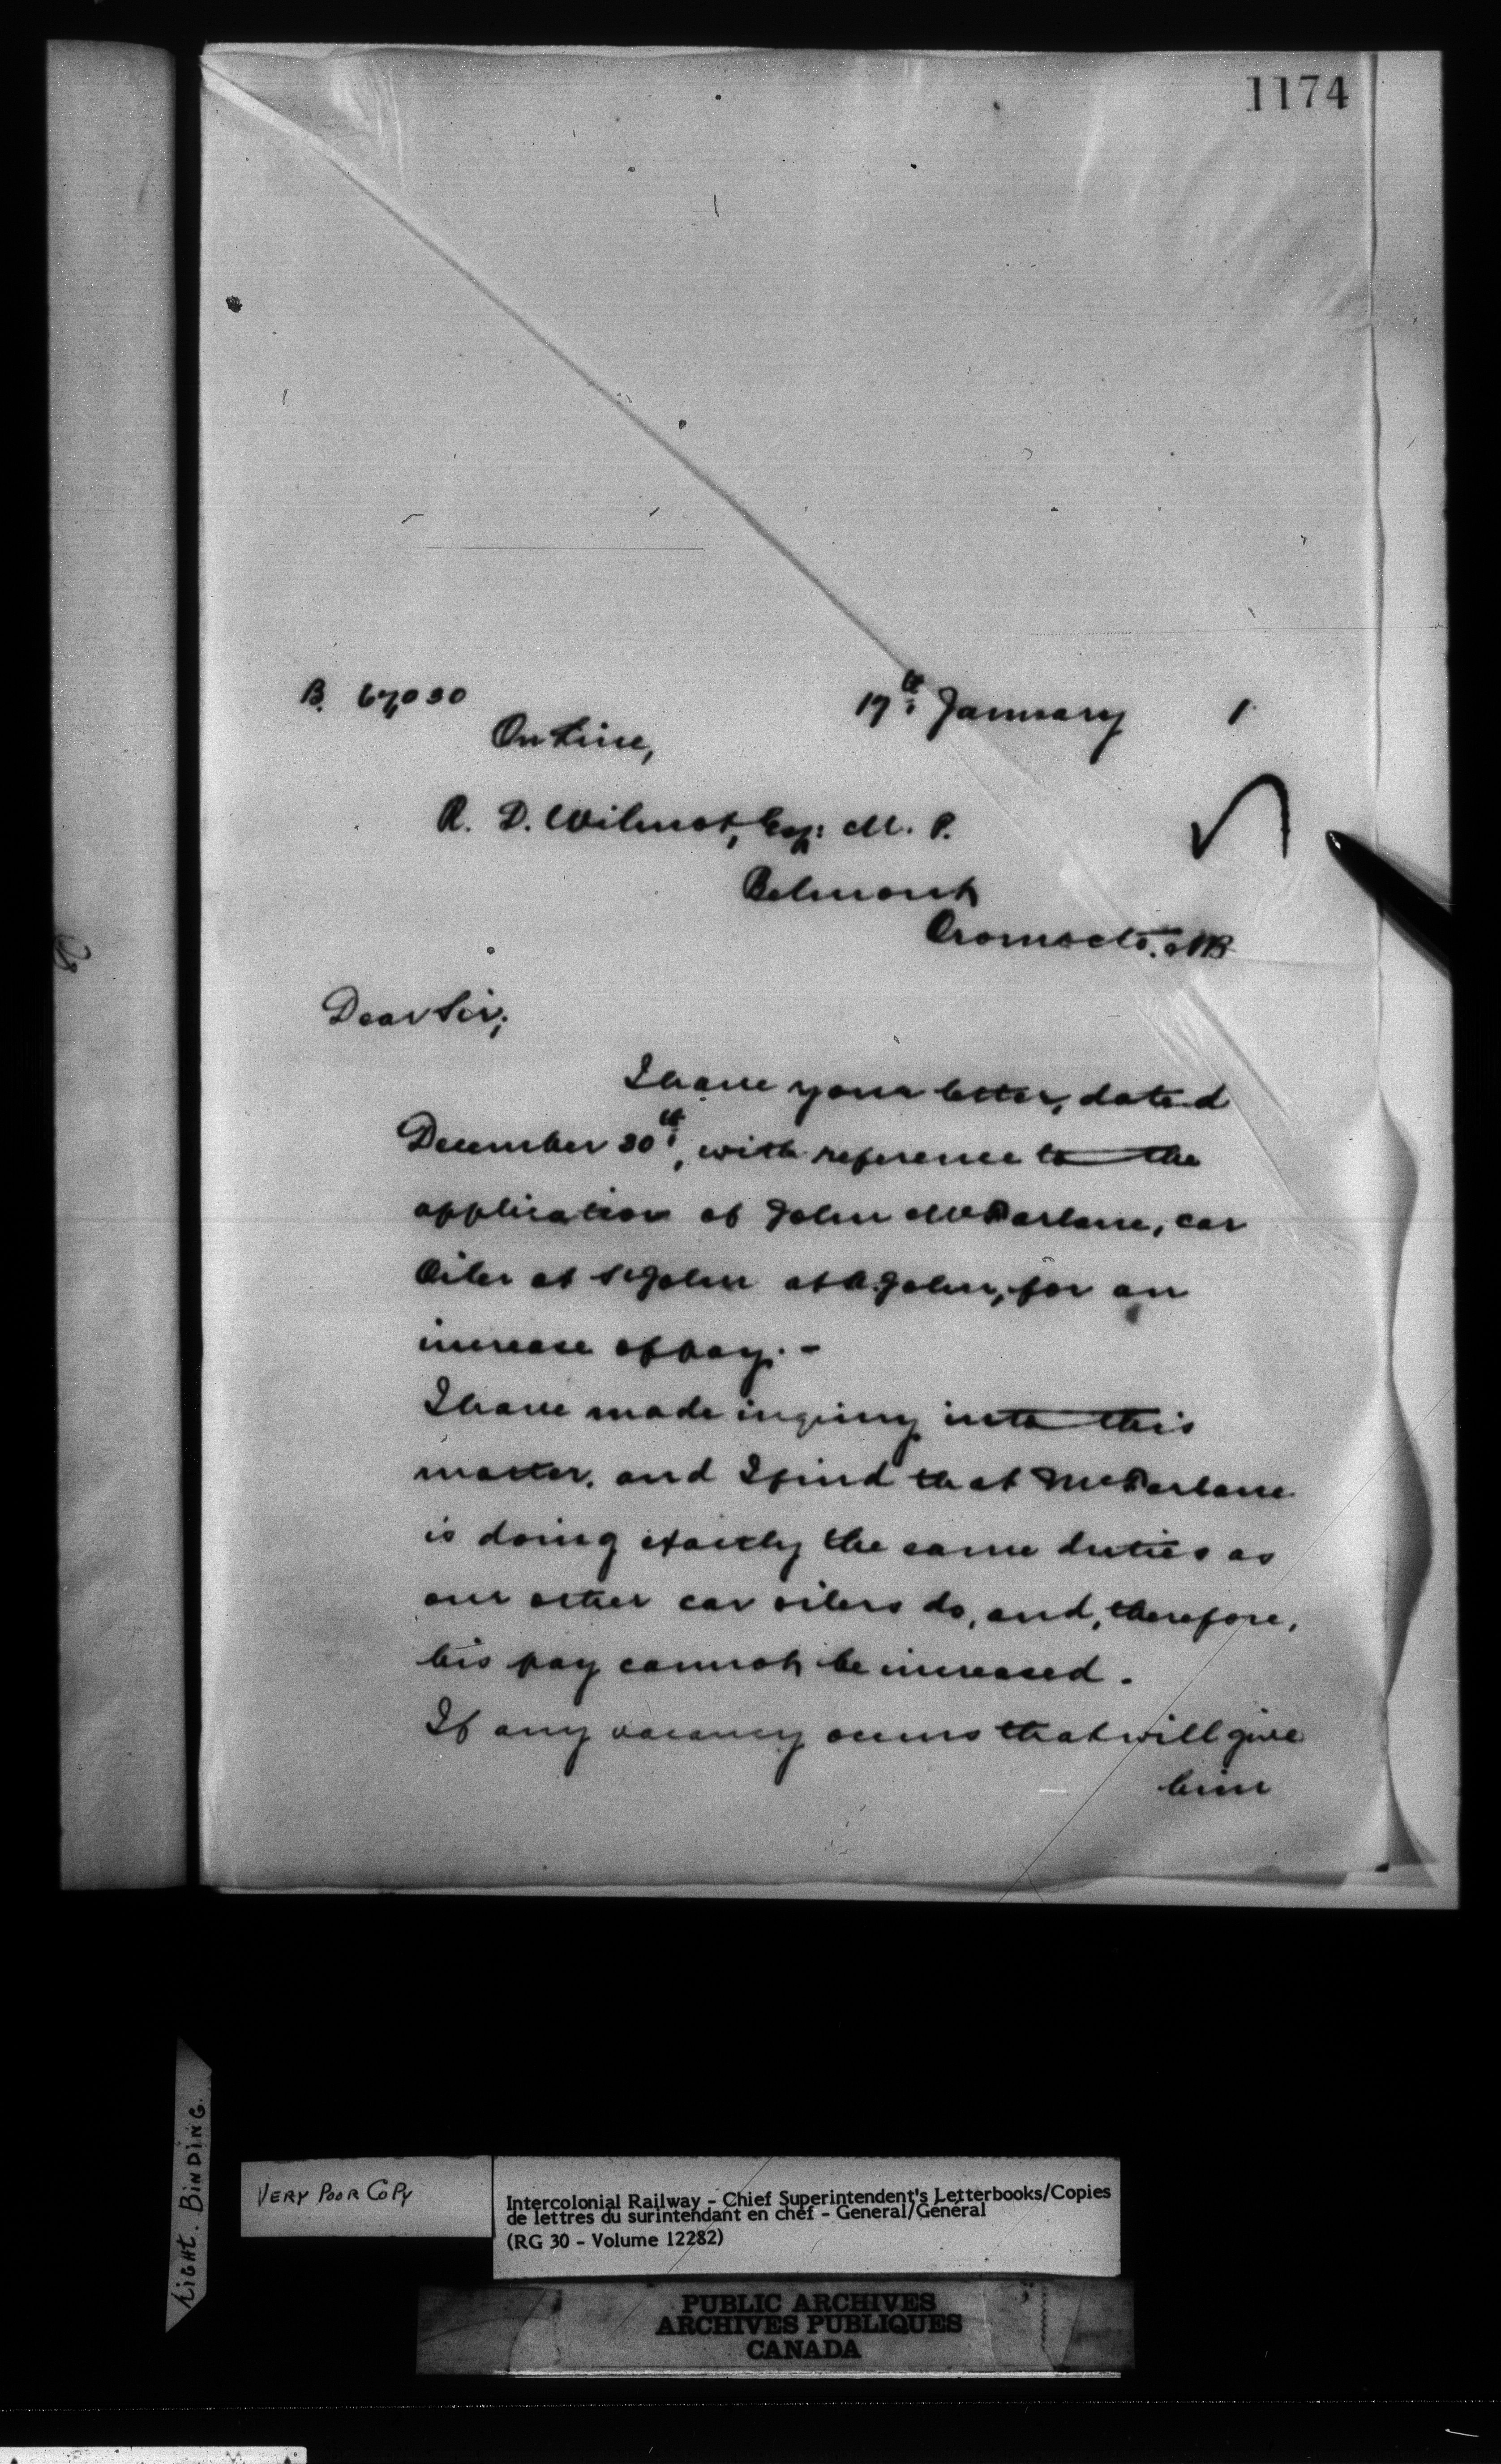 1174
B. 67030
17th January 1
On Line,
R. D. Wilmot, Esq: M. P.
Belmont
Oromocto. NB
Dear Sir;
I have your letter, dated
December 30th, with reference to the
application of John McFarlane, car
Oiler at St John at St. John, for an
increase of pay. -
I have made inquiry into this
matter, and I find that McFarlane
is doing exactly the same duties as
our other car oilers do, and, therefore,
his pay cannot be increased.
If any vacancy occurs that will give
him
TIGHT. BINDING.
VERY POOR COPY
Intercolonial Railway - Chief Superintendent's Letterbooks/Copies
de lettres du surintendant en chef - General/Général
(RG 30 - Volume 12282)
PUBLIC ARCHIVES
ARCHIVES PUBLIQUES
CANADA